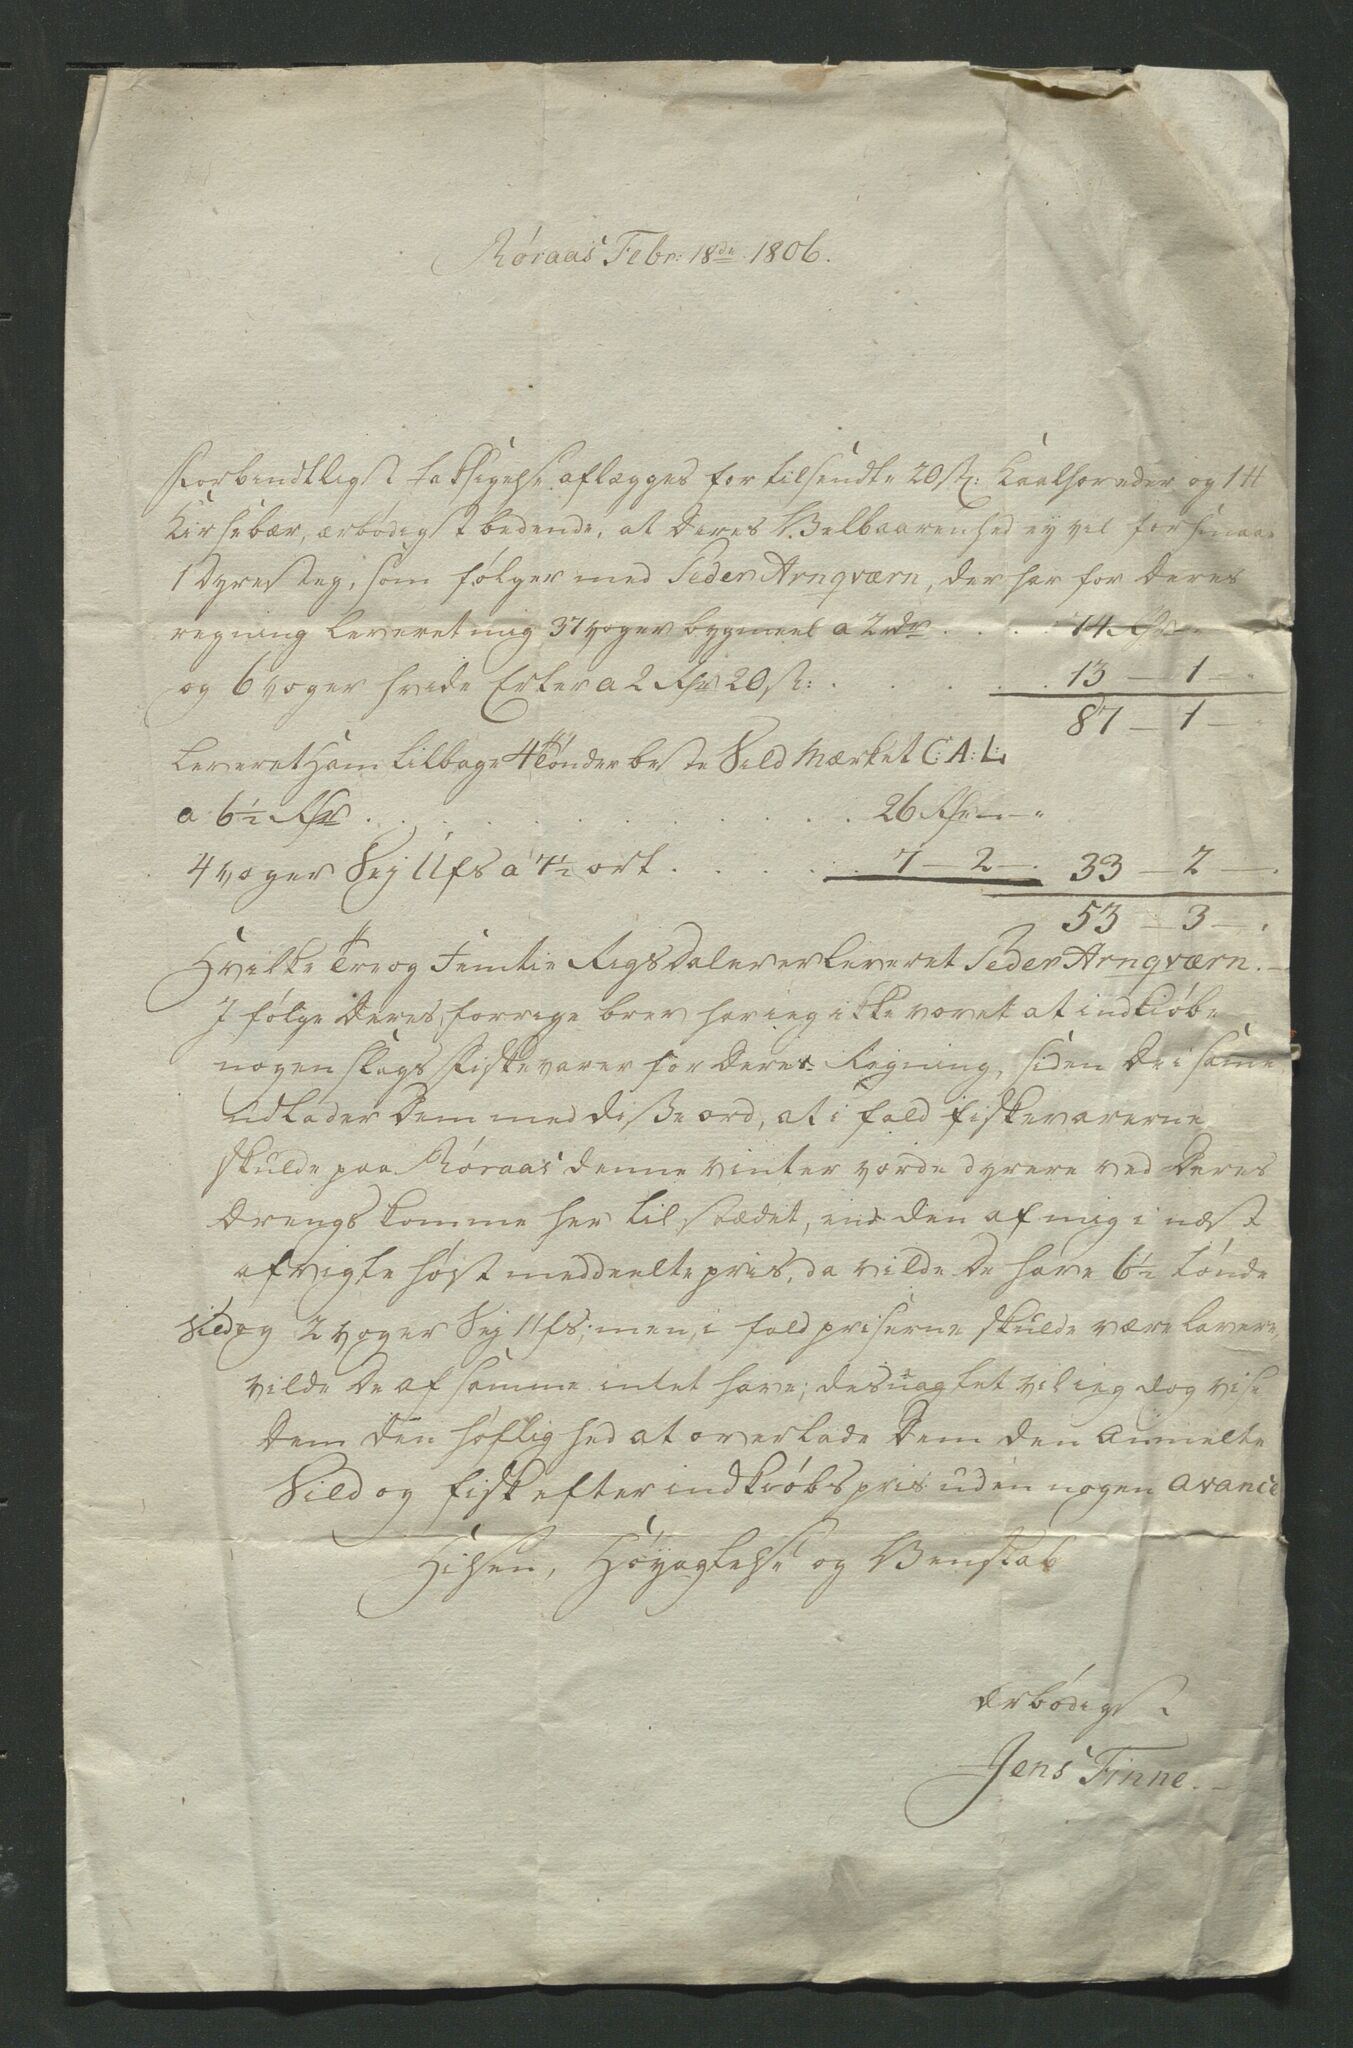 Røraas Febr: 18de 1806.
Forbindtligst taksigelse aflægges for tilsendte 20 st: Kaalhoveder og 1 ℔
Kirsebær, ærbødigst bedende, at Deres Velbaarenhed ey vil forsmaae
1 dyresteg, som følger med Peder Arnqværn, der har for Deres
regning leveret mig 37 voger bygmeel a 2 rdr . . . . 74 Rdr — „
og 6 voger hvide Erter a 2 Rdr 20 st: . . . . . 13 — 1 — „
87 — 1 — „
Leveret Ham tilbage 4 tønder beste Sild Mærket C: A: L:
a 6½ Rdr . . . . . . . . . . 26 Rdr — „
4 voger Sej 11fs a 7½ ort . . . . . 7 — 2 — . 33 — 2 — .
53 — 3 — .
Hvilke Tre og Femtie Rigsdaler er leveret Peder Arnqværn. —
I følge Deres forrige brev har ieg ikke voret at indkiøbe
nogen slags Fiskevarer for Deres Regning, siden De i same
udlader Dem med diße ord, at i fald fiskevarerne
skulde paa Røraas denne vinter vorde dyrere ved Deres
Drengs komme her til stædet, end den af mig i næst
afvigte høst meddeelte pris, da vilde De have 6½ tønde
Sild og 2 voger Sej 11fs; men, i fald priserne skulde være lavere,
vilde De af samme intet have; desuagtet vil ieg dog vise
Dem den høflighed at overlade Dem den anmelte
Sild og fisk efter indkiøbs pris uden nogen avance
Hilsen, Høyagtelse og Venskab
ærbødigst
Jens Finne. —